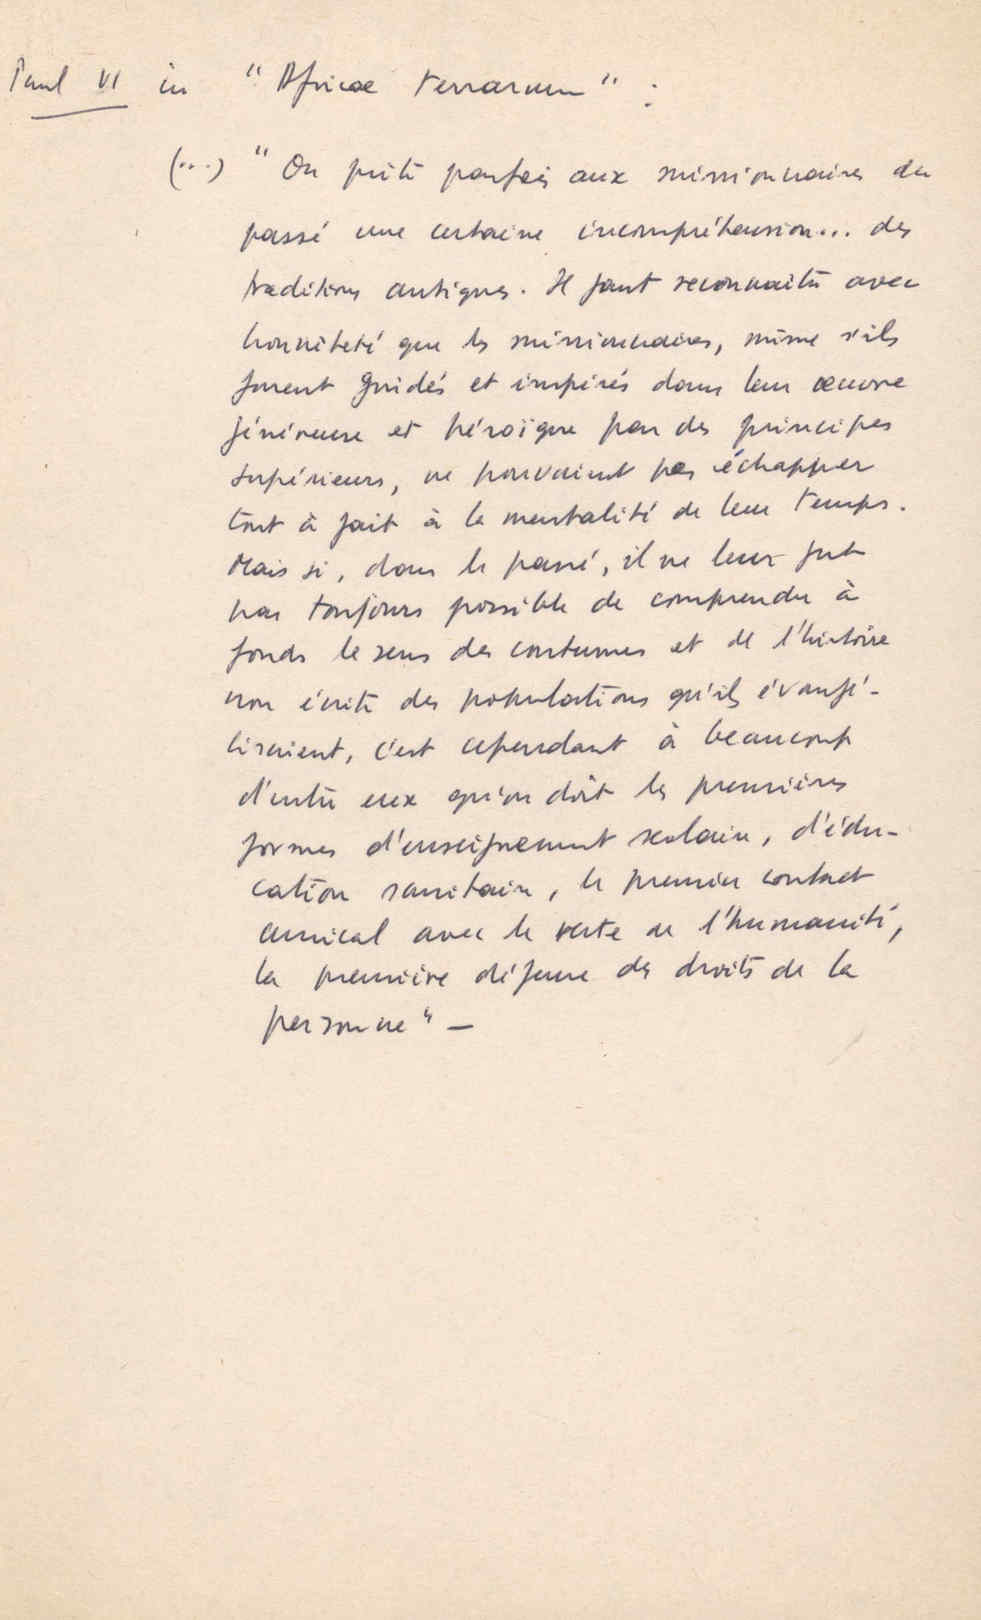 Paul VI in "Africae terrarum" :
(...) "On prête parfois aux missionnaires du
passé une certaine incompréhension... des
traditions antiques. Il faut reconnaître avec
honnêteté que les missionnaires, même s'ils
furent guidés et inspirés dans leur œuvre
généreuse et héroïque par des principes
supérieurs, ne pouvaient pas échapper
tout à fait à la mentalité de leur temps.
Mais si, dans le passé, il ne leur fut
pas toujours possible de comprendre à
fonds le sens des coutumes et de l'histoire
non écrite des populations qu'ils évangé-
lisaient, c'est cependant à beaucoup
d'entre eux qu'on doit les premières
formes d'enseignement scolaire, d'édu-
cation sanitaire, le premier contact
amical avec le reste de l'humanité,
la première défense des droits de la
personne" –